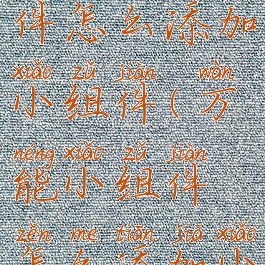 件怎么添加
xiǎo zǔ jiàn wàn
小组件(万
néng xiǎo zǔ jiàn
能小组件
zěn me tiān jiā xiǎo
怎么添加小